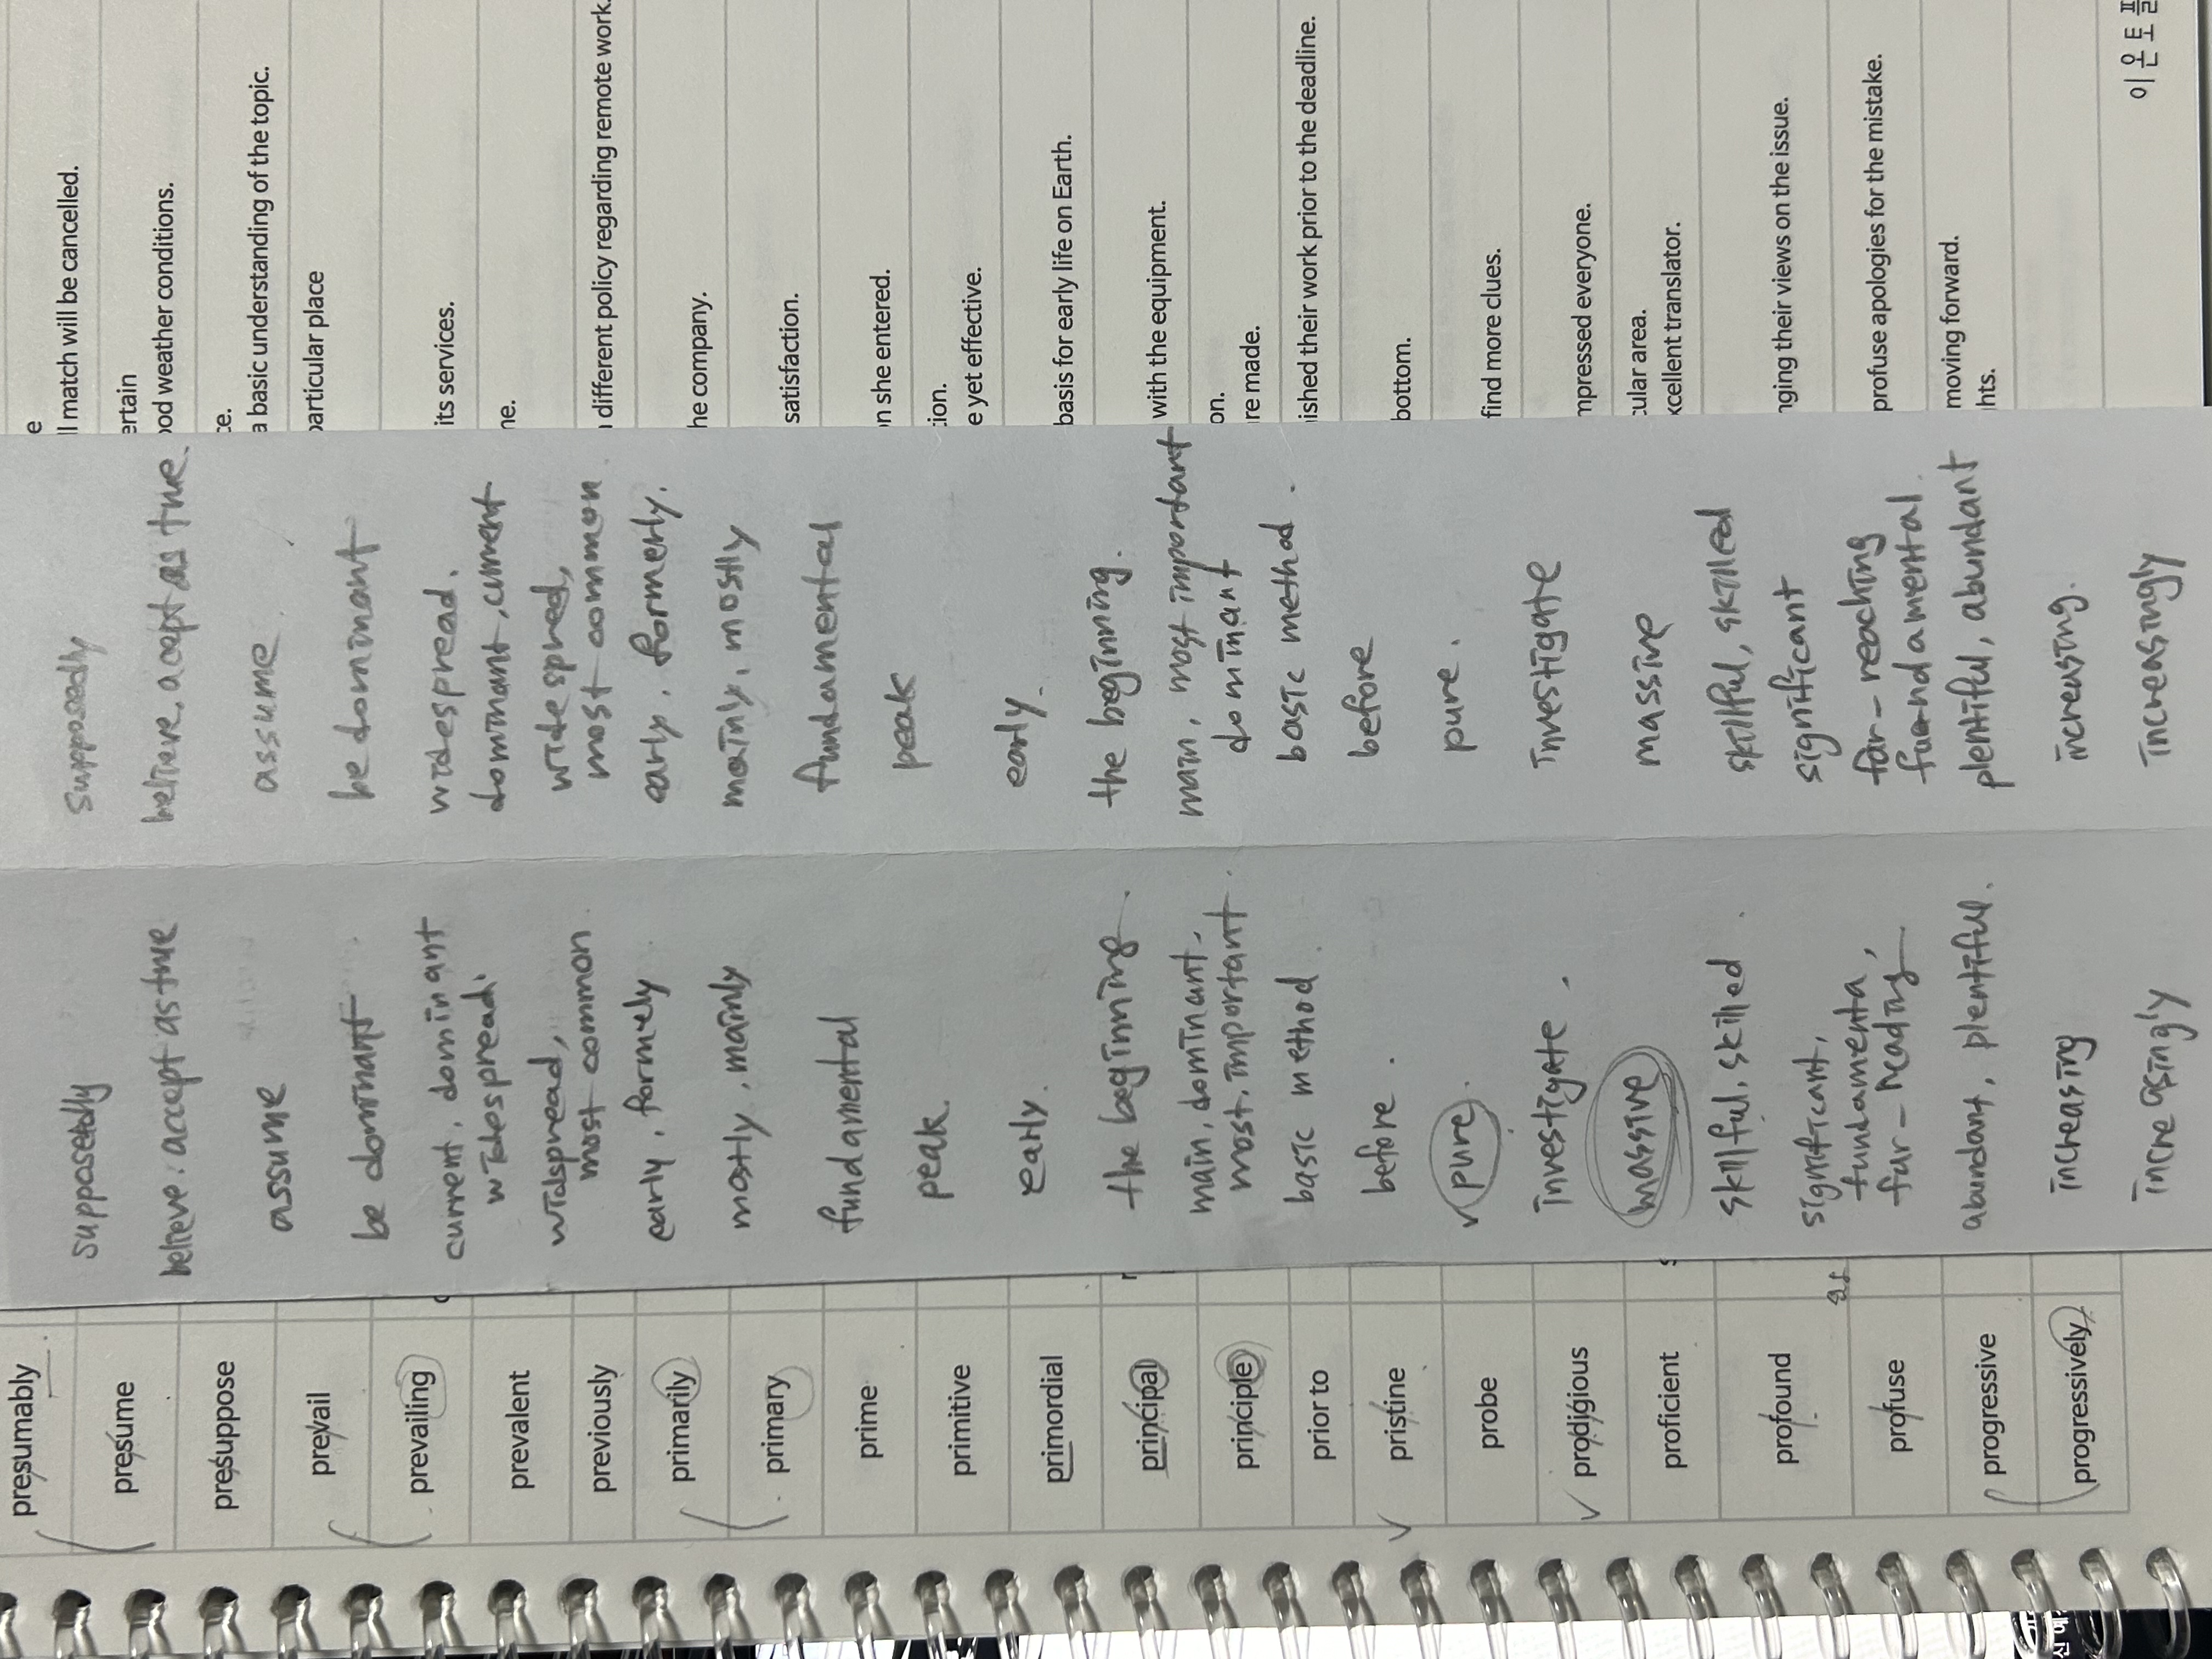 presumably
presume
presuppose
prevail
prevailing
prevalent
previously
primarily
primary
prime
primitive
primordial
principal
principle
prior to
pristine
probe
prodigious
proficient
profound
profuse
progressive
progressively
supposedly
believe, accept as true
assume
be dominant
current, dominant
widespread.
widspread,
most common
early, formely
mostly, mainly
fundamental
peak.
early.
the beginning.
main, dominant,
most, important.
basic method.
before.
pure.
investigate.
massive
skillful, skilled.
significant,
fundamenta,
far-reading
abundant, plentiful.
increasing
increasingly
supposedly
believe, acept as true.
assume.
be dominant
widespread.
dominant, current
wide spred,
most common
early, formerly.
mainly, mostly
fundamental
peak
early.
the beginning.
main, most important
dominant
basic method.
before
pure.
investigate
massive
skillful, skilled
significant
far-reaching
fundamental.
plentiful, abundant
increasing.
increasingly
e
ll match will be cancelled.
ertain
ood weather conditions.
ce.
a basic understanding of the topic.
particular place
its services.
ne.
different policy regarding remote work.
he company.
satisfaction.
n she entered.
tion.
e yet effective.
basis for early life on Earth.
with the equipment.
on.
re made.
ished their work prior to the deadline.
bottom.
find more clues.
mpressed everyone.
cular area.
xcellent translator.
nging their views on the issue.
profuse apologies for the mistake.
moving forward.
hts.
이온토플